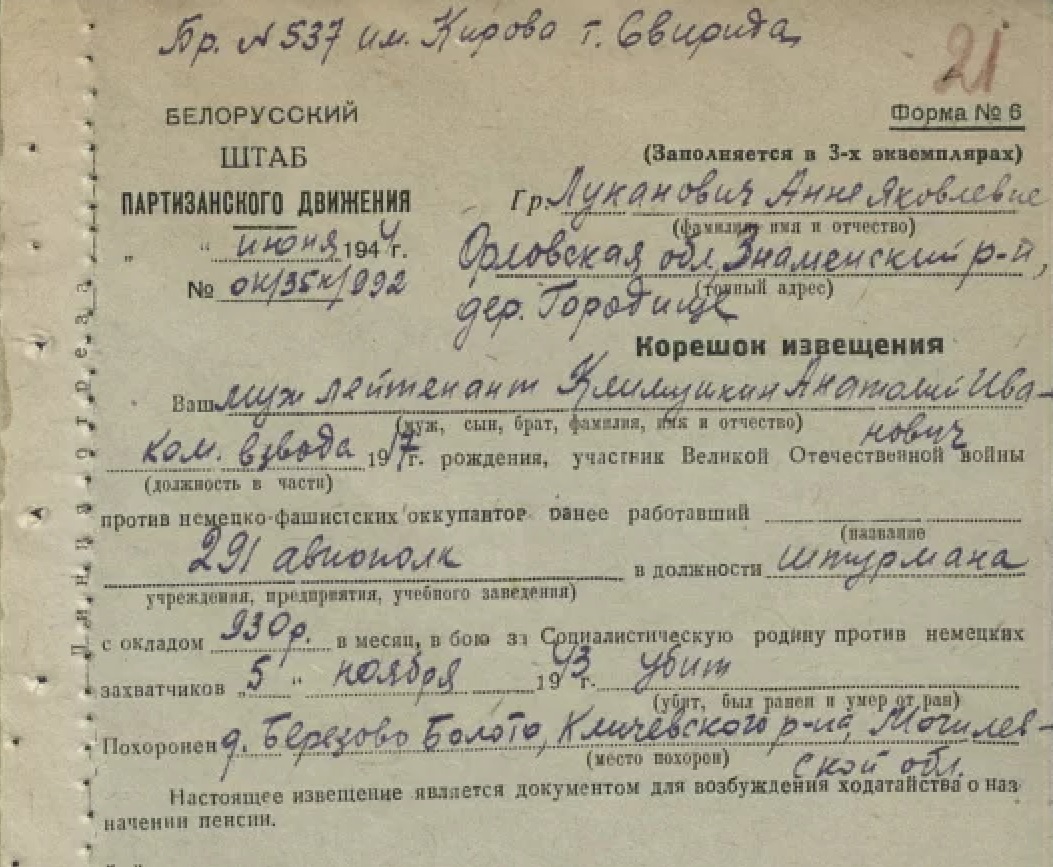 Бр. N 537 им. Кирова т. Свирида
21
БЕЛОРУССКИЙ
ШТАБ
ПАРТИЗАНСКОГО ДВИЖЕНИЯ
„ “ июня 1944г.
№ 0к/35к/992
Форма № 6
(Заполняется в 3-х экземплярах)
Гр. Луканович Анне Яковлевне
(фамилия имя и отчество)
Орловская обл, Знаменский р-н,
(точный адрес)
дер. Городище
Корешок извещения
Ваш муж лейтенант Климушкин Анатолий Ива-
(муж, сын, брат, фамилия, имя и отчество)
нович
ком. взвода 1917г. рождения, участник Великой Отечественной войны
(должность в части)
против немецко-фашистских оккупантор ранее работавший
(название
291 авиополк в должности штурмана
учреждения, предприятия, учебного заведения)
с окладом 930р. в месяц, в бою за Социалистическую родину против немецких
захватчиков „5“ ноября 1943г. убит
(убит, был ранен и умер от ран)
Похоронен д. Березово Болото, Кличевского р-на, Могилев-
(место похорон)
ской обл.
Настоящее извещение является документом для возбуждения ходатайства о наз
начении пенсии.